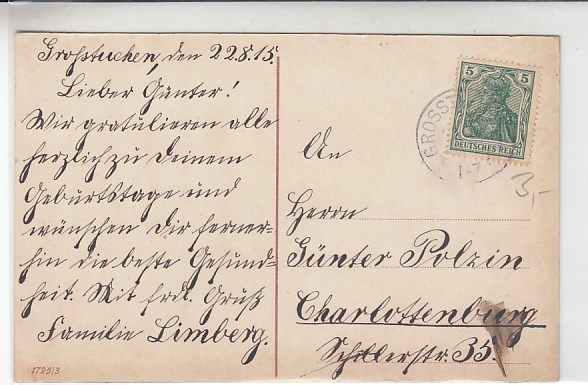 Großtuchen, den 22.8.15.
Lieber Günter!
Wir gratulieren alle
herzlich zu Deinem
Geburtstage und
wünschen Dir ferner-
hin die beste Gesund-
heit. Mit frdl. Gruß
Familie Limberg.
179513
5 5
DEUTSCHES REICH
GROSST
1-7
3,-
An
Herrn
Günter Polzin
Charlottenburg
Schillerstr. 35.